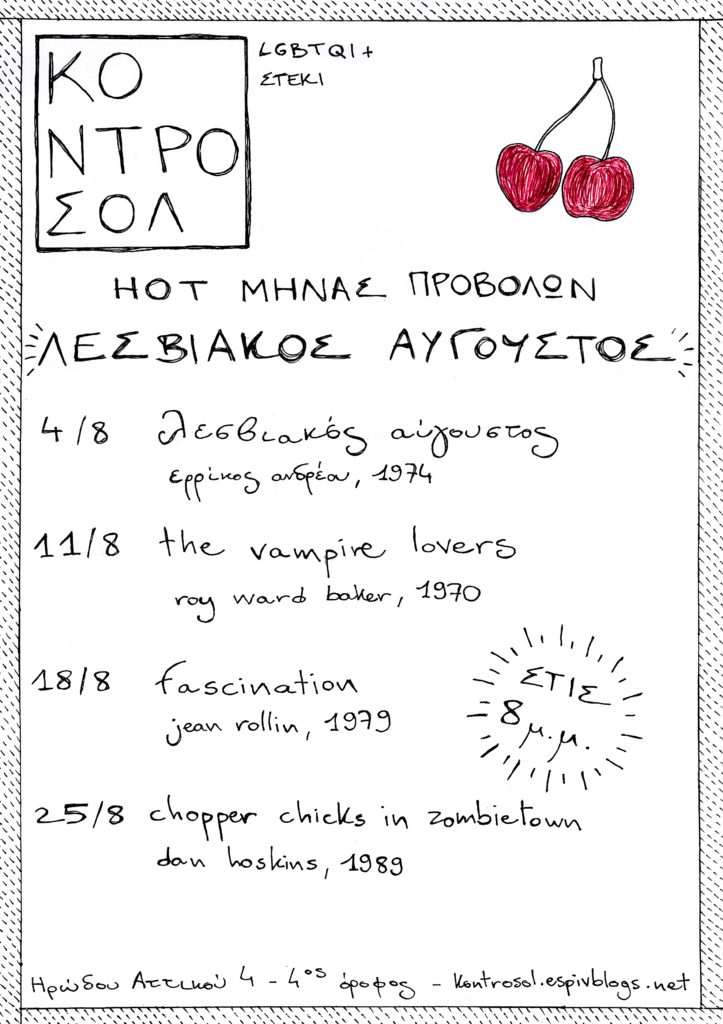 ΚΟ
ΝΤΡΟ
ΣΟΛ
LGBTQI+
ΣΤΕΚΙ
HOT ΜΗΝΑΣ ΠΡΟΒΟΛΩΝ
ΛΕΣΒΙΑΚΟΣ ΑΥΓΟΥΣΤΟΣ
4/8 λεσβιακός αύγουστος
ερρίκος ανδρέου, 1974
11/8 the vampire lovers
roy ward baker, 1970
18/8 fascination
jean rollin, 1979
ΣΤΙΣ
8
μ.μ.
25/8 chopper chicks in zombietown
dan hoskins, 1989
Ηρώδου Αττικού 4 - 4ος όροφος - kontrosol.espivblogs.net